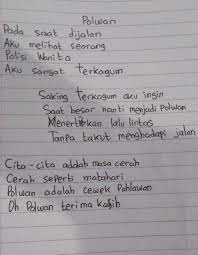 Polwan
Pada saat dijalan
Aku melihat seorang
Polisi Wanita
Aku sangat terkagum
Saking terkagum aku ingin
Saat besar nanti menjadi Polwan
Menertibkan lalu lintas
Tanpa takut menghadapi jalan
Cita-cita adalah masa cerah
Cerah seperti matahari
Polwan adalah cewek Pahlawan
Oh Polwan terima kasih